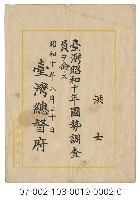 洪士
臺灣昭和十年國勢調査
員ヲ命ス
昭和十年八月二十日
臺灣總督府
07-002-103-0019-0002-0